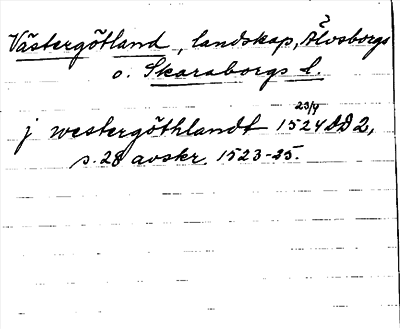 Västergötland, landskap, Älvsborgs
o. Skaraborgs l.
j westergöthlandt 1524 23/4 DD 2,
s. 28 avskr. 1523-25.